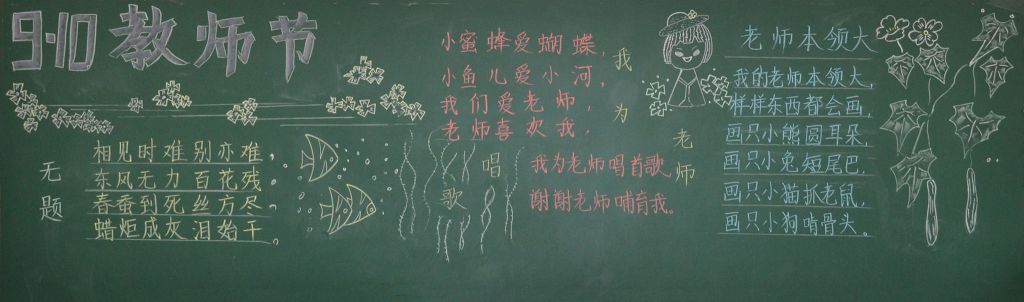 9·10教师节
无题
相见时难别亦难，
东风无力百花残
春蚕到死丝方尽，
蜡炬成灰泪始干。
我为老师唱歌
小蜜蜂爱蝴蝶，
小鱼儿爱小河，
我们爱老师，
老师喜欢我，
我为老师唱首歌
谢谢老师哺育我。
老师本领大
我的老师本领大，
样样东西都会画，
画只小熊圆耳朵，
画只小兔短尾巴，
画只小猫抓老鼠，
画只小狗啃骨头。